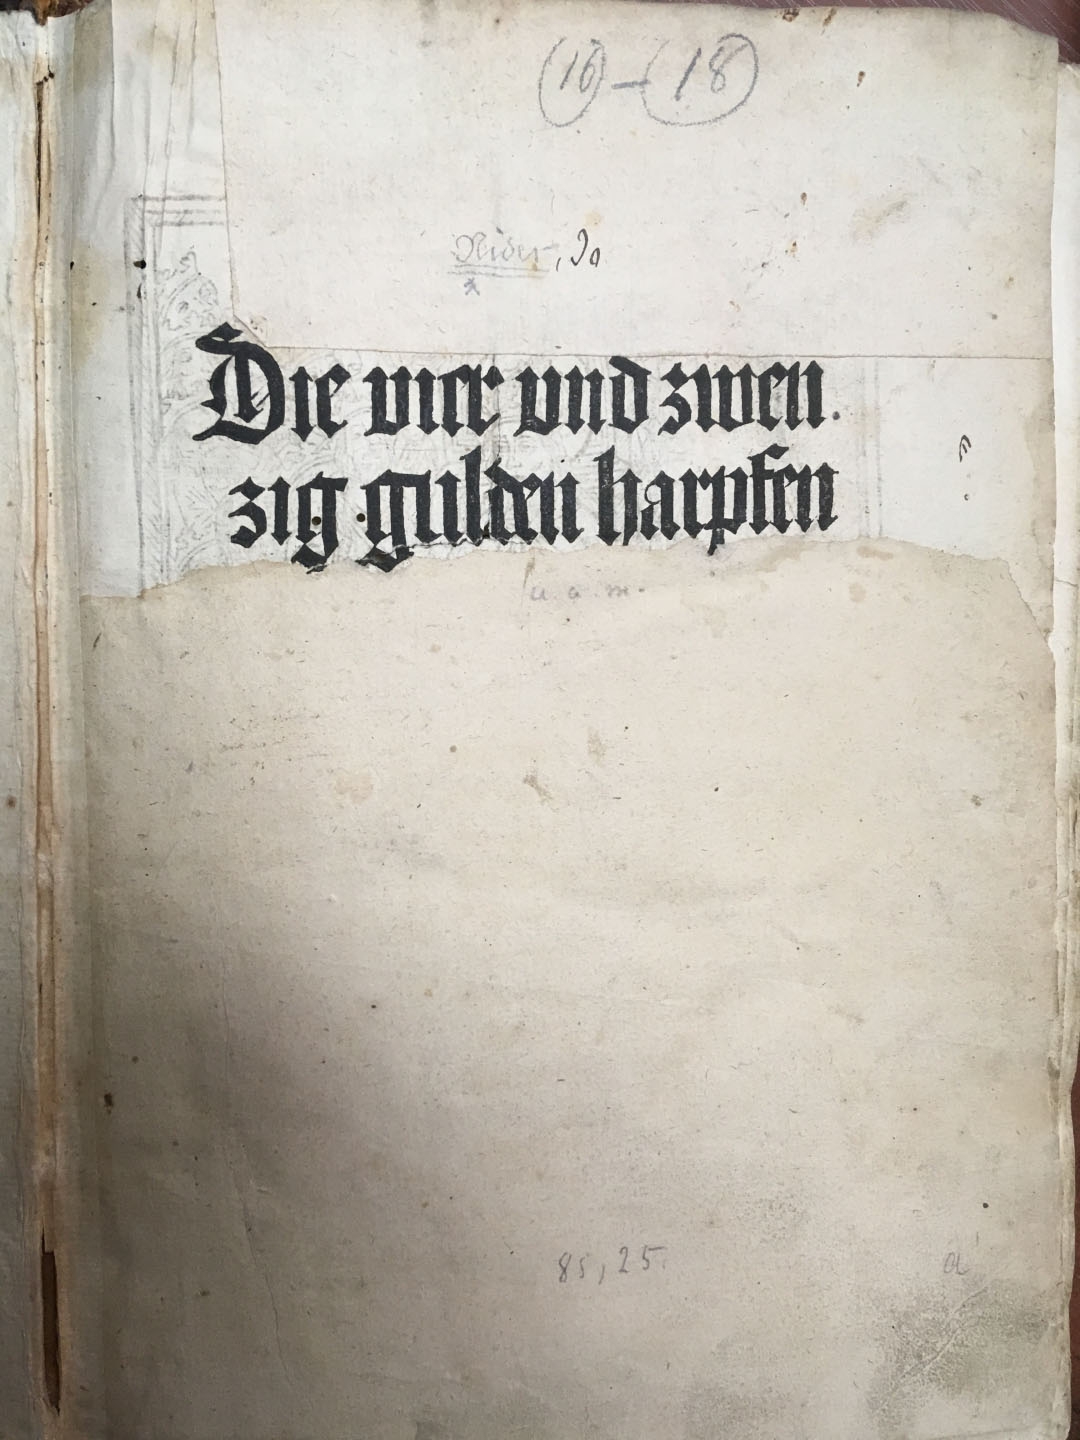 16 - 18
Nider, Jo
Die vier vnd zwen
zig gulden harpfen
u. a. m.
85, 25.
a